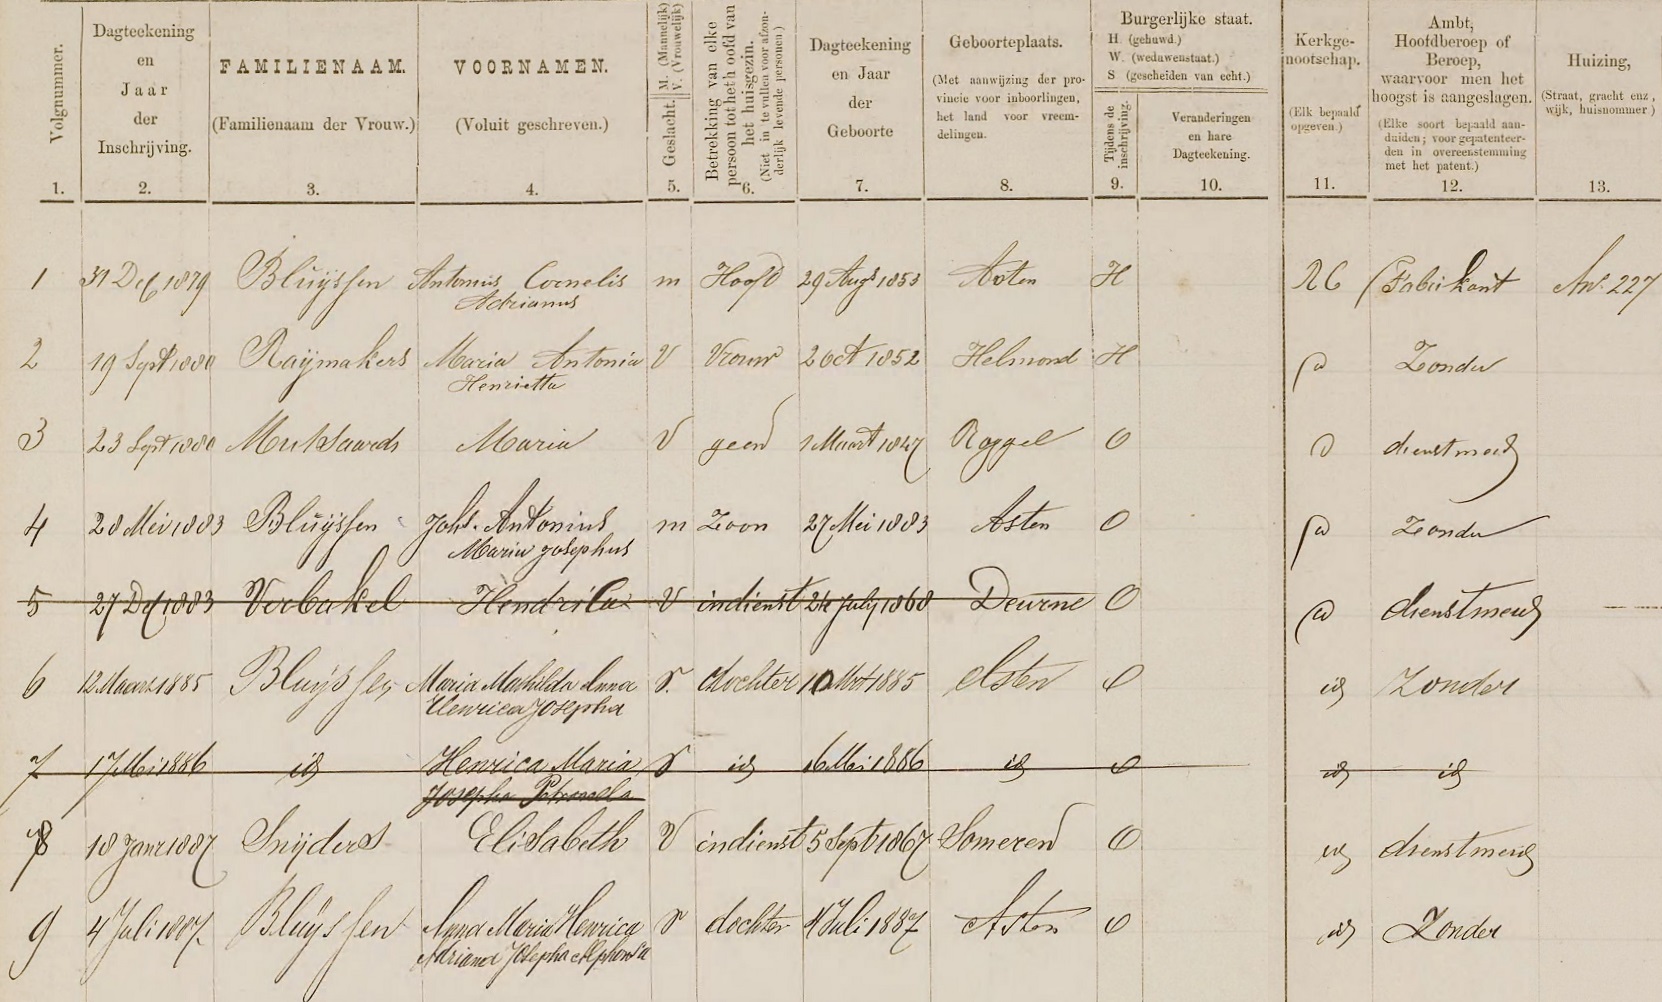 Volgnummer.
1.
Dagteekening
en
Jaar
der
Inschrijving.
2.
FAMILIENAAM.
(Familienaam der Vrouw.)
3.
VOORNAMEN.
(Voluit geschreven.)
4.
M. (Mannelijk)
V. (Vrouwelijk)
Geslacht.
5.
Betrekking van elke
persoon tot het hoofd van
het huisgezin.
(Niet in te vullen voor afzon-
derlijk levende personen)
6.
Dagteekening
en Jaar
der
Geboorte
7.
Geboorteplaats.
(Met aanwijzing der pro-
vincie voor inboorlingen,
het land voor vreem-
delingen.
8.
Burgerlijke staat.
H. (gehuwd.)
W. (weduwenstaat.)
S (gescheiden van echt.)
Tijdens de
inschrijving.
9.
Veranderingen
en hare
Dagteekening.
10.
Kerkge-
nootschap.
(Elk bepaald
opgeven.)
11.
Ambt,
Hoofdberoep of
Beroep,
waarvoor men het
hoogst is aangeslagen.
(Elke soort bepaald aan-
duiden; voor gepatenteer-
den in overeenstemming
met het patent.)
12.
Huizing,
(Straat, gracht enz,
wijk, huisnommer)
13.
1 31 Dec 1879 Bluÿssen Antonius Cornelis m Hoofd 29 Augt 1853 Asten H RC Fabrikant An. 227
Adrianus
2 19 Sept 1880 Raÿmakers Maria Antonia V Vrouw 2 Oct 1852 Helmond H Zonder
Henrietta
3 23 Sept 1880 Maria V geen 1 Maart 1847 Roggel O dienstmeid
4 28 Mei 1883 Bluÿssen Johs. Antonius m Zoon 27 Mei 1883 Asten O Zonder
Maria Josephus
5 27 Dec 1883 Verbakel Hendrica V indienst 24 July 1868 Deurne O dienstmeid
6 12 Maart 1885 Bluÿssen Maria Mathilda Anna V. dochter 10 Mrt 1885 Asten O id Zonder
Henrica Josepha
7 17 Mei 1886 id Henrica Maria V id 16 Mei 1886 id O id id
Josepha Petronella
8 18 Janr 1887 Snijders Elisabeth V indienst 5 Sept 1867 Someren O id dienstmeid
9 4 Juli 1887. Bluÿssen Anna Maria Henrica V dochter 4 Juli 1887 Asten O id Zonder
Adriana Josepha Alphonsa